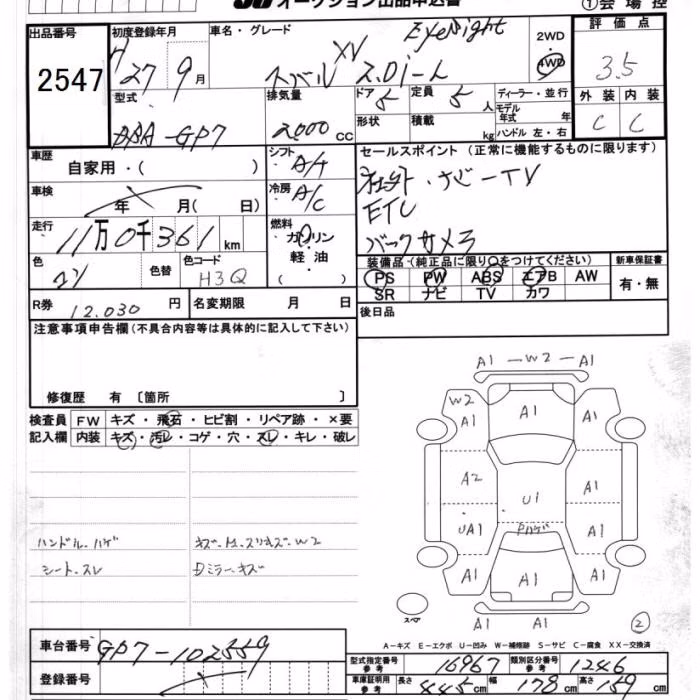 JU オークション出品申込書 ①会場控
出品番号 初度登録年月 車名・グレード 評価点
2547 H27 9月 スバル XV 2.0i-L EyeSight 2WD 4WD 3.5
型式 排気量 ドア 定員 ディーラー・並行 外装 内装
DBA-GP7 2000cc 5 5人 モデル年式 年 C C
形状 積載 kg ハンドル 左・右
車歴 自家用・( ) シフト A/T セールスポイント(正常に機能するものに限ります)
車検 年 月( 日) 冷房 A/C 社外・ナビーTV
ETC
走行 11万0千361km 燃料 ガソリン 軽油 ・( ) バックカメラ
色 色替 色コード H3Q 装備品(純正品に限り○をつけてください) 新車保証書
PS PW ABS エアB AW 有・無
SR ナビ TV カワ
R券 12.030円 名変期限 月 日 後日品
注意事項申告欄(不具合内容等は具体的に記入して下さい)
修復歴 有 〔箇所 〕
検査員 FW キズ・飛石・ヒビ割・リペア跡・×要
記入欄 内装 キズ・汚レ・コゲ・穴・スレ・キレ・破レ
ハンドル・ハゲ キズ・W2
シート・スレ Dミラー・キズ
A1 - W2 - A1
W2 A1 A1 A1
A2 U1 A1
UA1 A1
A1 A1 A1
A1 A1
スペア ②
A-キズ E-エクボ U-凹み W-補修跡 S-サビ C-腐食 XX-交換済
車台番号 GP7-102559
登録番号
型式指定番号 参考 16967 類別区分番号 参考 1246
車庫証明用 参考 長さ 445cm 幅 178cm 高さ 159cm